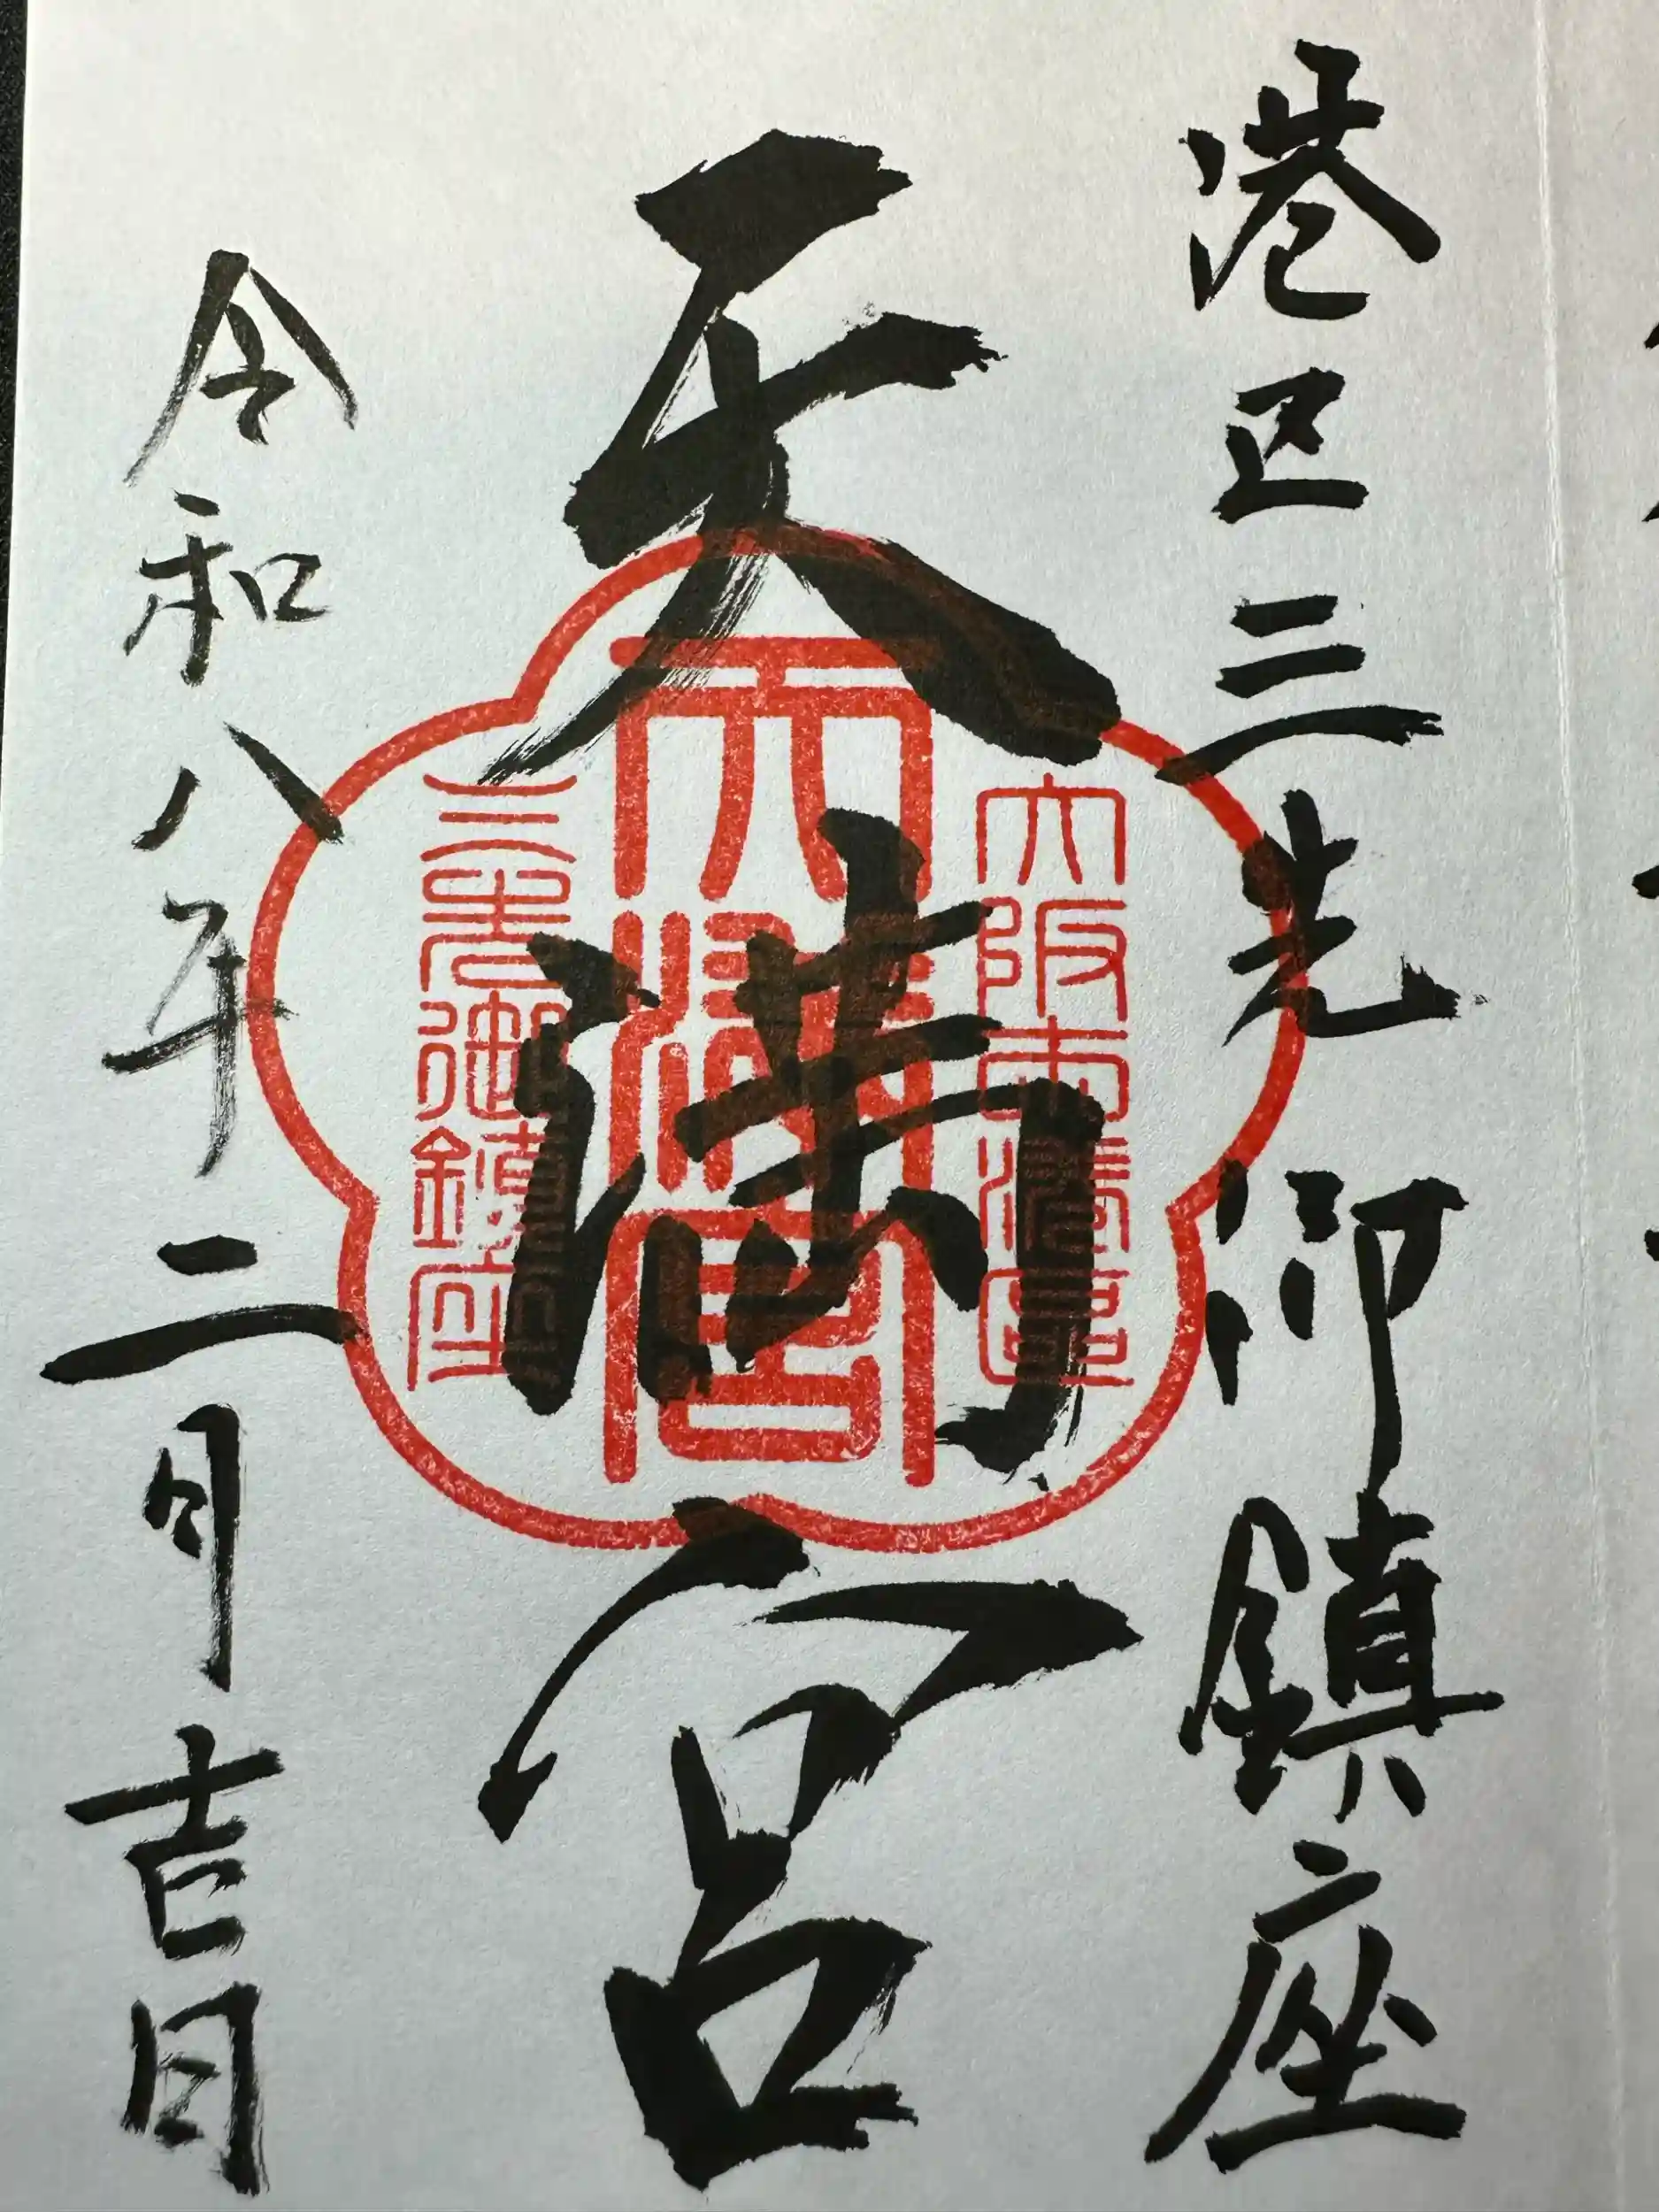 港区三先御鎮座
天満宮
大阪市港区
天満宮
三先御鎮座
令和八年二月吉日